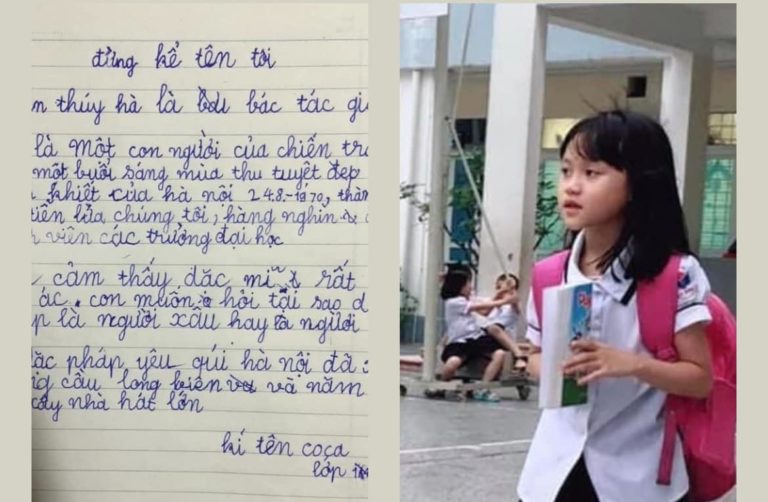 đừng kể tên tôi
thúy hà là bác tác
là một con người của chiến
một buổi sáng mùa thu tuyệt đẹp
khiết của hà nội 24.8.-1970,
lửa chúng tôi, hàng nghìn
viên các trường đại học
cảm thấy, dặc mĩ rất
ác. con muốn hỏi tại sao
là người xấu hay là người
pháp yêu quí hà nội đã
cầu long biên và năm
nhà hát lớn
kí tên coca
lớp